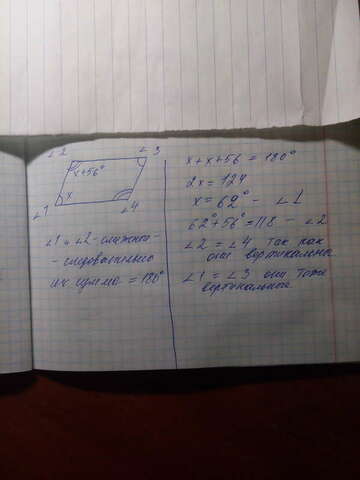 ∠2
∠3
x+56°
x
∠1
∠4
∠1 и ∠2 - смежные -
- следовательно
их сумма = 180°
x+x+56 = 180°
2x = 124
x = 62° - ∠1
62°+56° = 118 - ∠2
∠2 = ∠4 так как
они вертикальны
∠1 = ∠3 они тоже
вертикальные